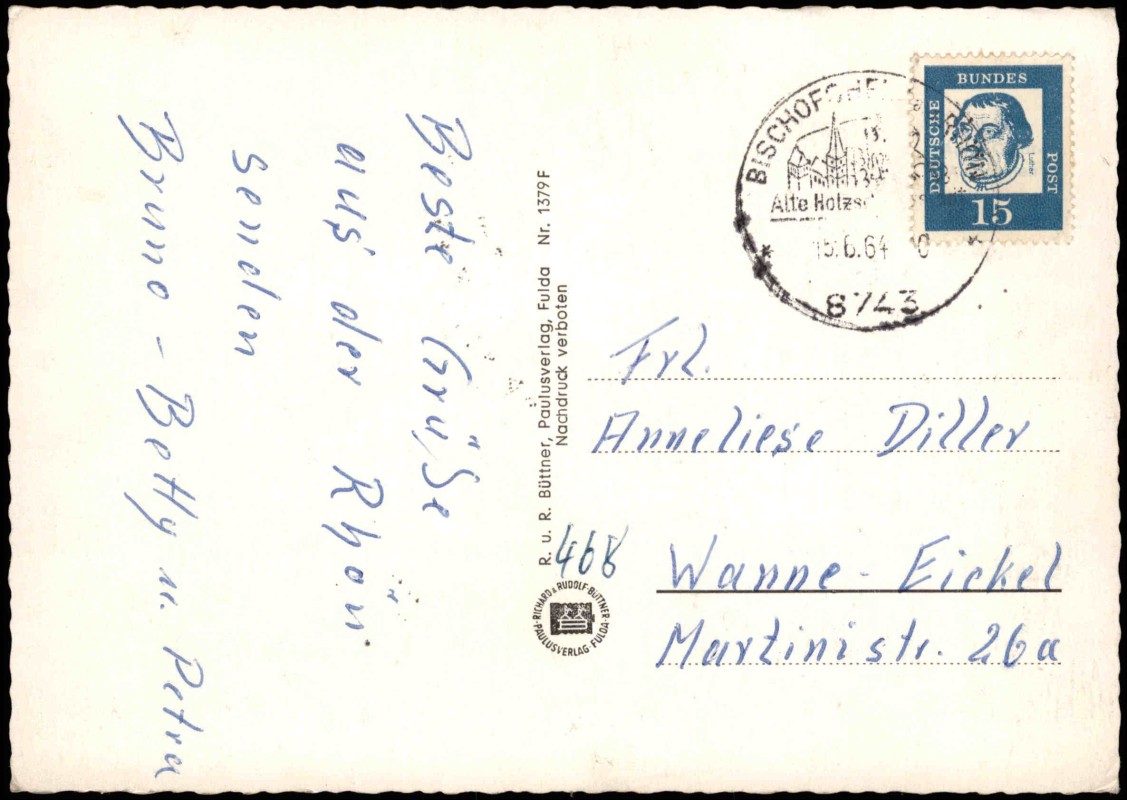 Beste Grüße
aus der Rhön
senden
Bruno - Betty u. Petra
R. u. R. Büttner, Paulusverlag, Fulda Nr. 1379 F
Nachdruck verboten
468
RICHARD & RUDOLF BÜTTNER
PAULUSVERLAG FULDA
BISCHOFSHEI
RHÖN
Alte Holzsc
15.6.64
8743
DEUTSCHE
BUNDES
POST
Luther
15
Frl.
Anneliese Diller
Wanne-Eickel
Martinistr. 26a